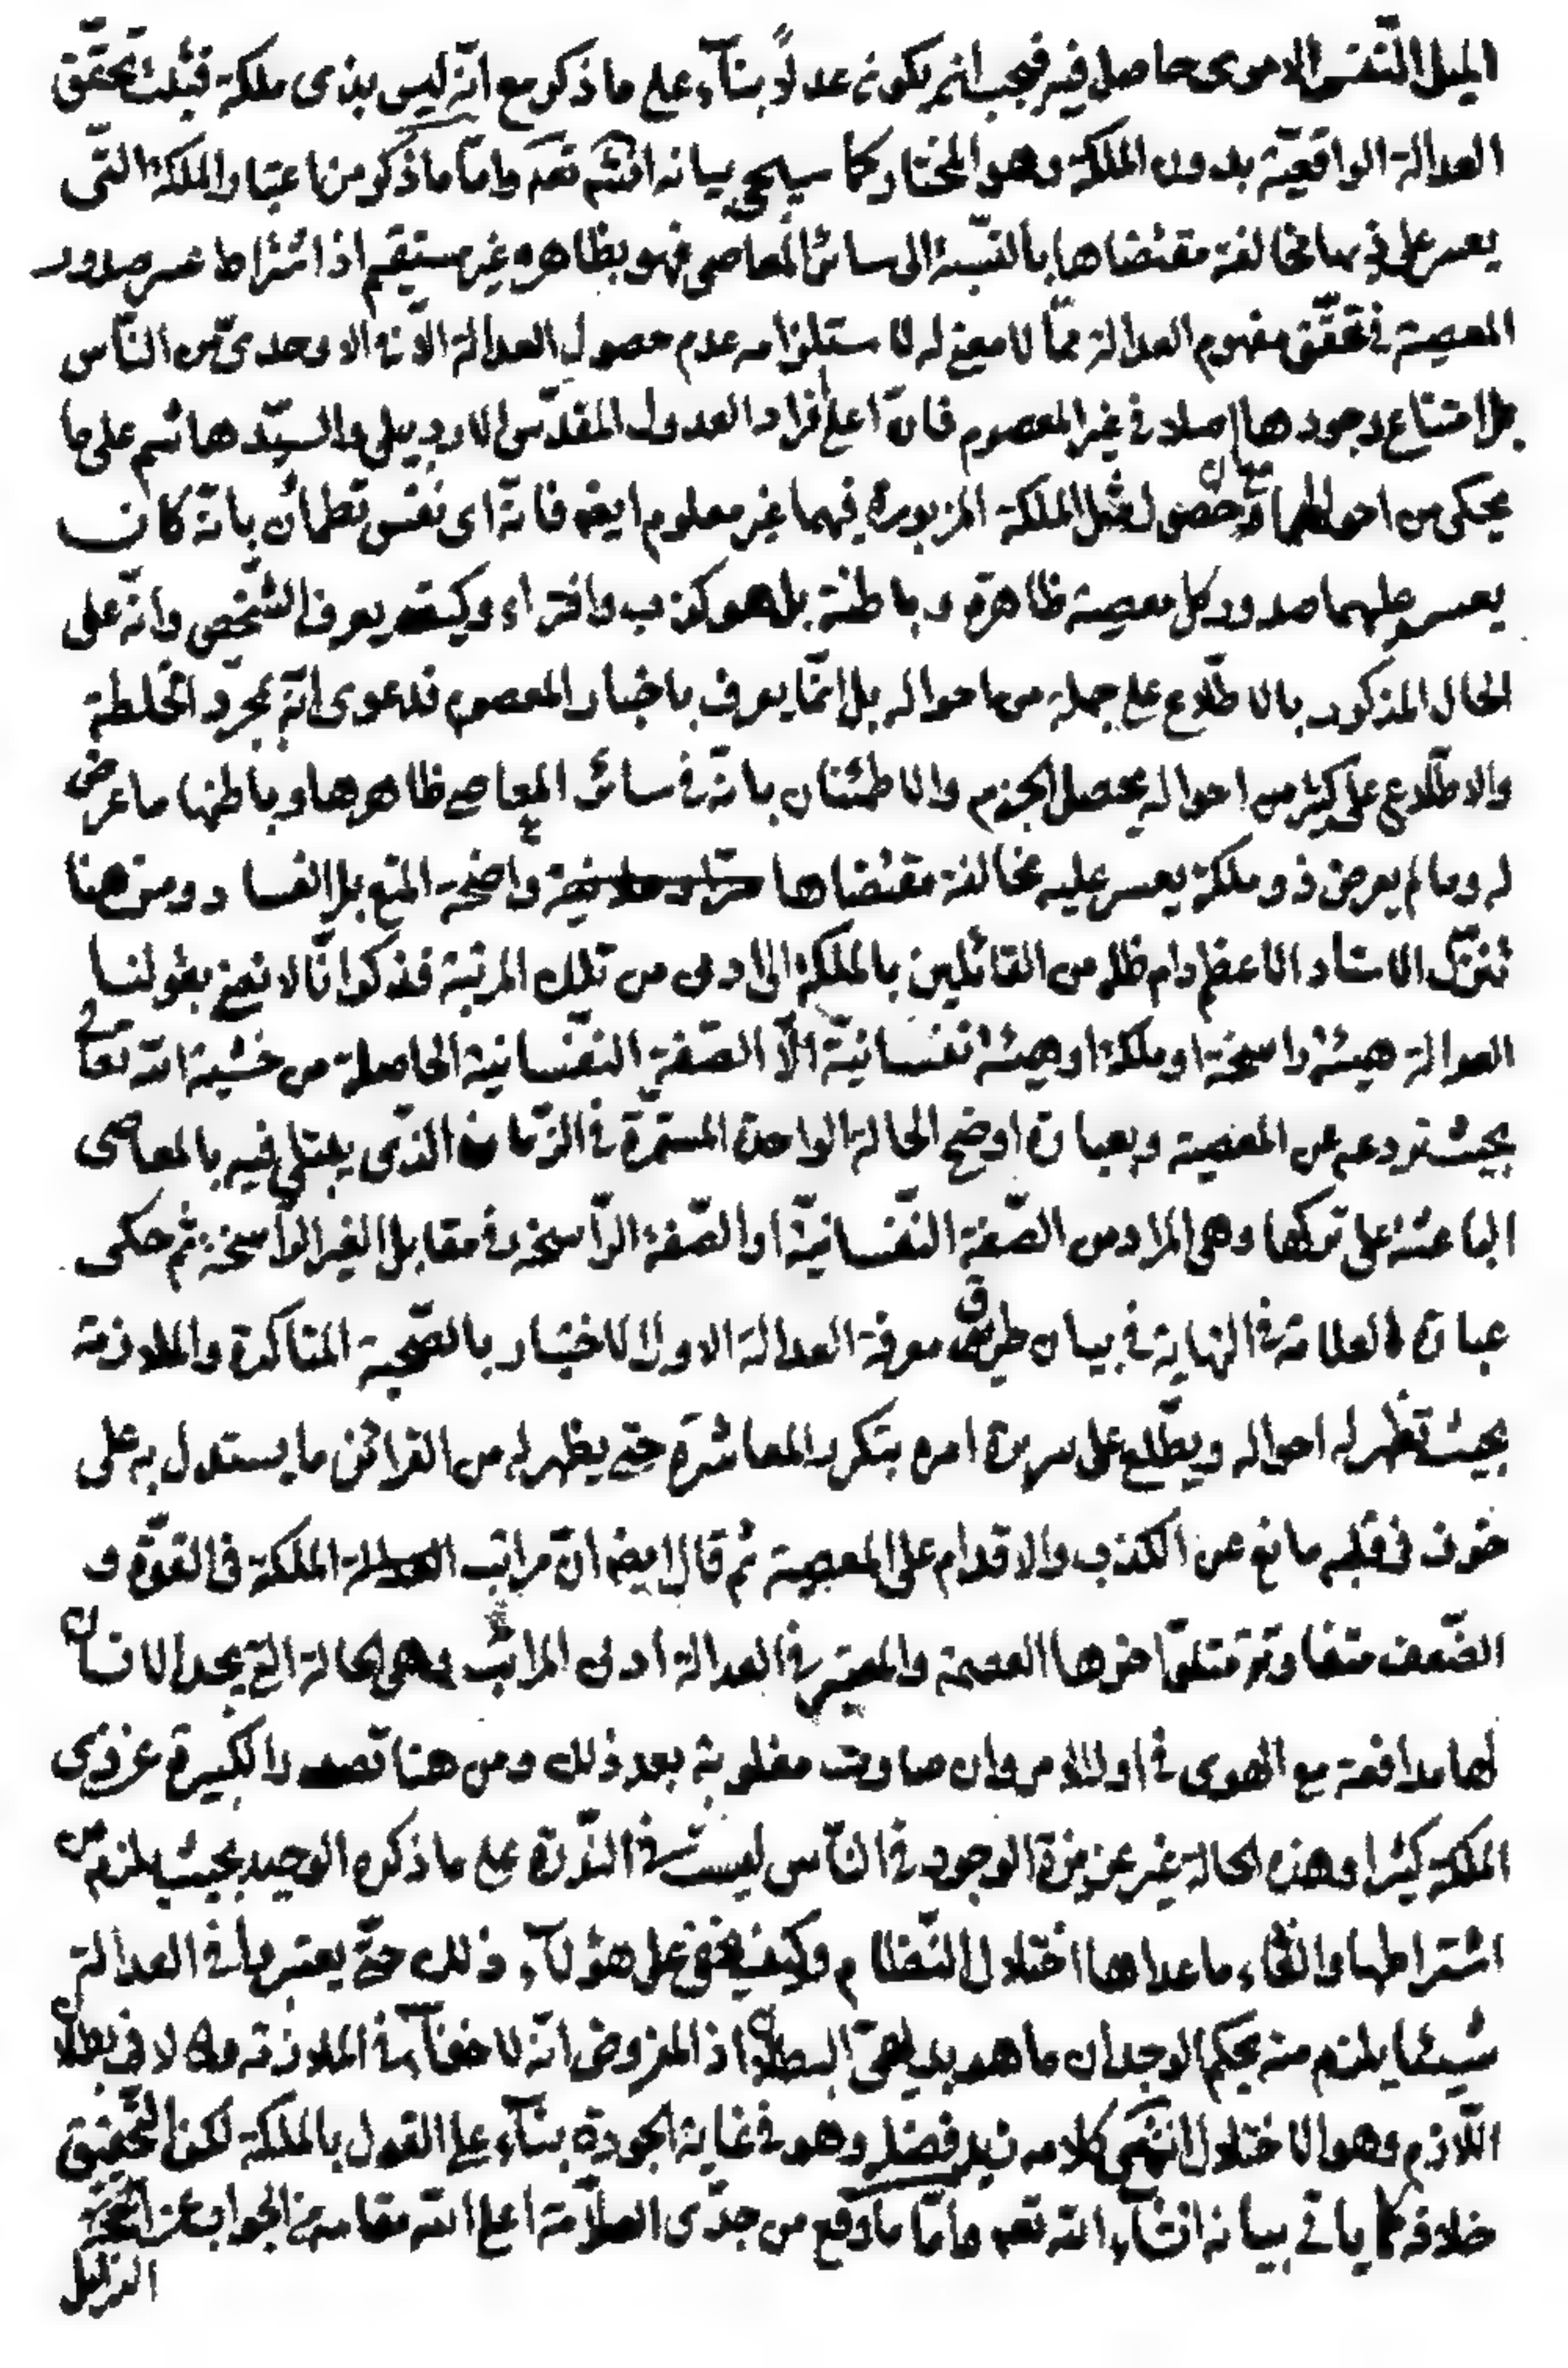 الميل النفس الامرى حاصل فيه فيجب ان يكون عدلًا بنآء على ما ذكر مع انّه ليس بذى ملكة فثبت تحقّق
العدالة الواقعيّة بدون الملكة وهو المختار كما سيجئ بيانه انشآء الله تعه وامّا ما ذكر من اعتبار الملكة التّى
يعسر على ذيها مخالفة مقتضاها بالنّسبة الى سائر المعاصى فهو بظاهره غير مستقيم اذ اشتراط عسر صدور
المعصية فى تحقّق مفهوم العدالة ممّا لا معنى له لاستلزامه عدم حصول العدالة الّا فى الاوحدىّ من النّاس
بل امتناع وجودها اصلا فى غير المعصوم فانّ اعلى افراد العدول المقدّس الاردبيلى والسيّد هاشم على ما
يحكى من احوالهما وحصول مثل الملكة المزبورة فيهما غير معلوم ايضه فانّه اى نفس تطمأن بانّه كان
يعسر عليهما صدور كل معصية ظاهرة وباطنة بل هو كذب وافتراء وكيف يعرف الشّخص وانّه على
الحال المذكور بالاطّلاع على جملة من احواله بل انّما يعرف باخبار المعصوم فدعوى انّه بمجرّد الخلطة
والاطّلاع على كثير من احواله يحصل الجزم والاطمئنان بانّه فى سائر المعاصى ظاهرها وباطنها ما عرض
له وما لم يعرض ذو ملكة يعسر عليه مخالفة مقتضاها واضحة المنع بل الفساد ومن هنا
تنزّل الاستاد الاعظم دام ظله من القائلين بالملكة الى ادنى من تلك المرتبة فذكر انّا لا نعنى بقولنا
العدالة هيئة راسخة او ملكة او هيئة نفسانيّة الّا الصّفة النّفسانية الحاصلة من خشية الله تعالى
بحيث تردعه عن المعصية وبعبارة اوضح الحالة الواحدة المستمرّة فى الزّمان الذّى يبتلى فيه بالمعاصى
الباعثة على تركها وهى المراد من الصّفة النّفسانيّة او الصّفة الرّاسخة فى مقابل الغير الرّاسخة ثم حكى
عبارة العلامة فى النهاية فى بيان طريق معرفة العدالة الاول الاختبار بالصّحبة المتاكدة والملازمة
بحيث تظهر له احواله ويطّلع على سريرة امره بتكرر المعاشرة حتى يظهر له من القرائن ما يستدل به على
خوف فى قلبه مانع عن الكذب والاقدام على المعصية ثم قال ايضه انّ مراتب الملكة فى القوّة و
الضّعف متفاوتة يتلوّ اخرها العصمة والمعتبر فى العدالة ادنى المراتب وهى الحالة التى يجد الانسان
لها مدافعة مع الهوى فى اول الامر وان صارت مغلوبة بعد ذلك ومن هنا تصدر الكبيرة عن ذى
الملكة كثيرا وهذه الحالة غير عزيزة الوجود فى النّاس ليست فى النّدرة على ما ذكره الوحيد بحيث يلزم من
اشتراطها والغاء ما عداها اختلال النّظام وكيف يخفى على هؤلآء ذلك حتّى يعتبروا فى العدالة
شيئا يلزم منه بحكم الوجدان ما هو بديهىّ البطلان اذ المفروض انّه لا خفآء فى الملازمة ولا فى بطلان
اللّازم وهو الاختلال انتهى كلامه زيد فضله وهو فى غاية الجودة بنآء على القول بالملكة لكن التّحقيق
خلافه كما ياتى بيانه انشآء الله تعه وامّا ما وقع من جدّى العلّامة اعلى الله مقامه من الجواب عن الحجّة